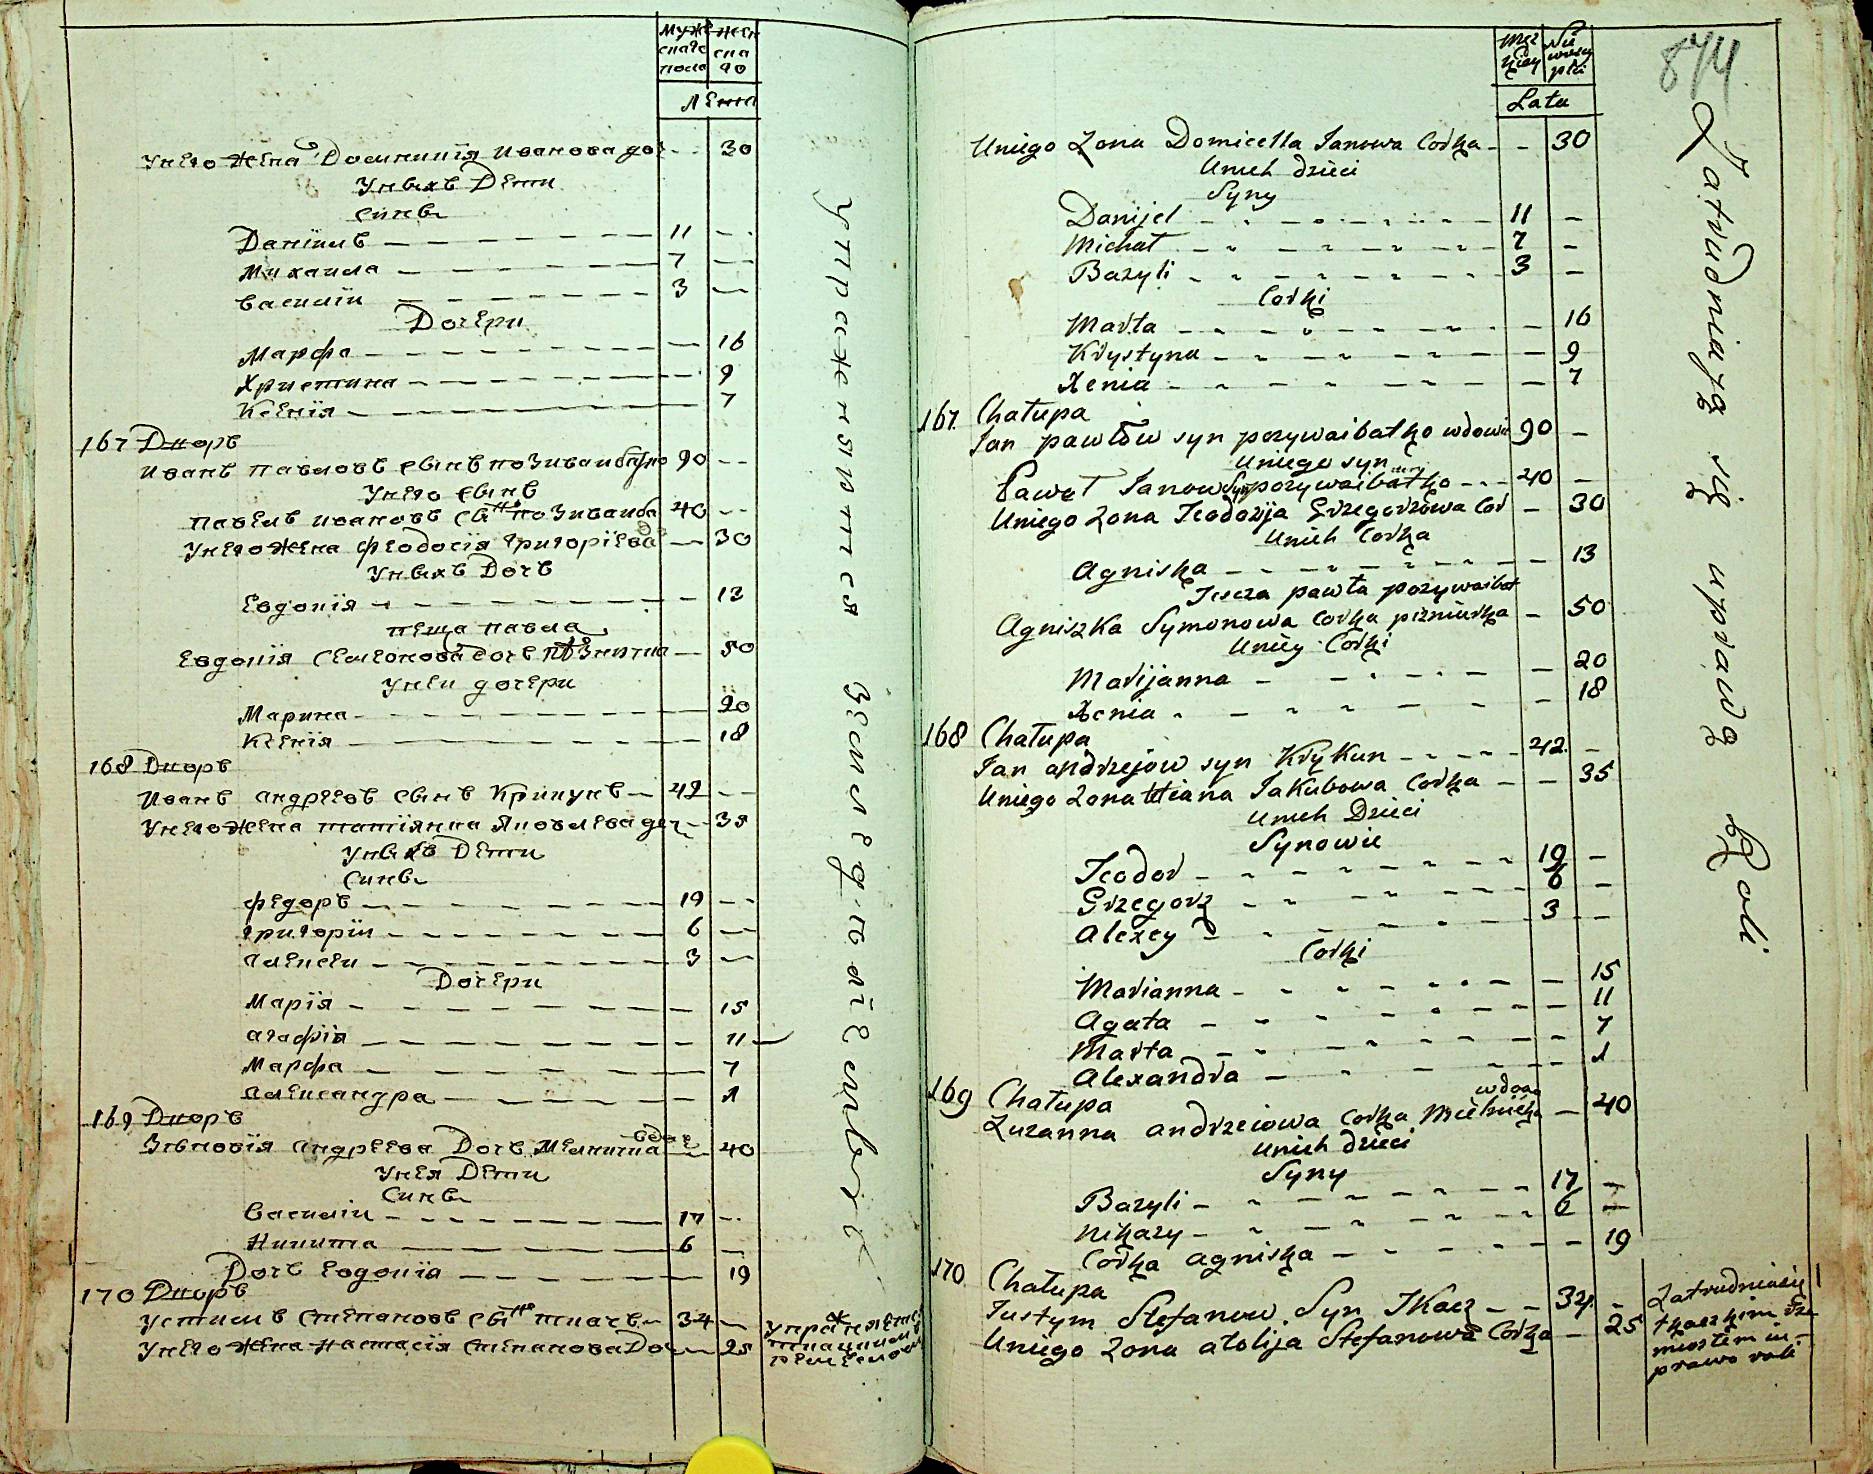 Муже
скаго
пола
Жен
ска
го
Лета
Унего жена Доминикія Иванова доч - - 30
Унихъ Дети
сины
Даніилъ 11
Михаила 7
Василій 3
Дочери
Марфа 16
Христина 9
Ксенія 7
167 Дворъ
Иванъ Павловъ сынъ позиваибатко 90
Унего сынъ
Павелъ Ивановъ сынъ позиваиба 40
Унего жена Феодосія Григоріева 30
Унихъ Дочъ
Евдокія 13
теща Павла
Евдокія Семенова дочъ 50
Унеи дочери
Марина 20
Ксенія 18
168 Дворъ
Иванъ Андреевъ сынъ Крикунъ 42
Унего жена татіянна Яковлева доч 35
Унихъ Дети
Сины
Федоръ 19
Григорій 6
Алексеи 3
Дочери
Марія 15
агафія 11
Марфа 7
Александра 1
169 Дворъ
Зѣновія Андреева Дочъ Мелничка вдова 40
Унея Дети
Сины
Василіи 17
Никита 6
Дочъ Евдокіа 19
170 Дворъ
Устимъ Степановъ сынъ ткачъ 34
Унего жена Настасія Степанова До 25
Упражняется
ткацкимъ
ремесломъ
Упражняются земледѣліемъ
Męz
Kiey
Nie
wiesc
płci
Lata
874
Uniego Zona Domicella Janowa Corka - - 30
Unich dzieci
Syny
Danijel 11 -
Michał 7 -
Bazyli 3 -
Corki
Marta - 16
Krystyna - 9
Xenia - 7
167. Chałupa
Jan pawłow syn pozywaibatko wdowiec 90 -
Uniego syn
Paweł Janow Syn pozywaibatko 40 -
Uniego Zona Teodozja Grzegorzowa Cor - 30
Unich Corka
Agniska - 13
Tescza pawła pozywaibat
Agniszka Symonowa Corka - 50
Uniey Corki
Marijanna - 20
Xenia - 18
168 Chałupa
Jan andrzejow syn Krykun 42 -
Uniego Zona tetiana Jakubowa Corka - - 35
Unich Dzieci
Synowie
Teodor 19 -
Grzegorz 6 -
Alexey 3 -
Corki
Marianna - 15
Agata - 11
Marta - 7
Alexandra - 1
169 Chałupa
wdowa
Zuzanna andrzeiowa Corka Mielniczka - 40
unich dzieci
Syny
Bazyli 17 -
Nikazy 6 -
Corka Agniska - 19
170 Chałupa
Justym Stefanow Syn Tkacz 34 -
Uniego Zona atolija Stefanowa Corka - 25
Zatrudniasię
tkackim rze
miosłem iu-
prawo roli
Zatrudniają się uprawą Roli